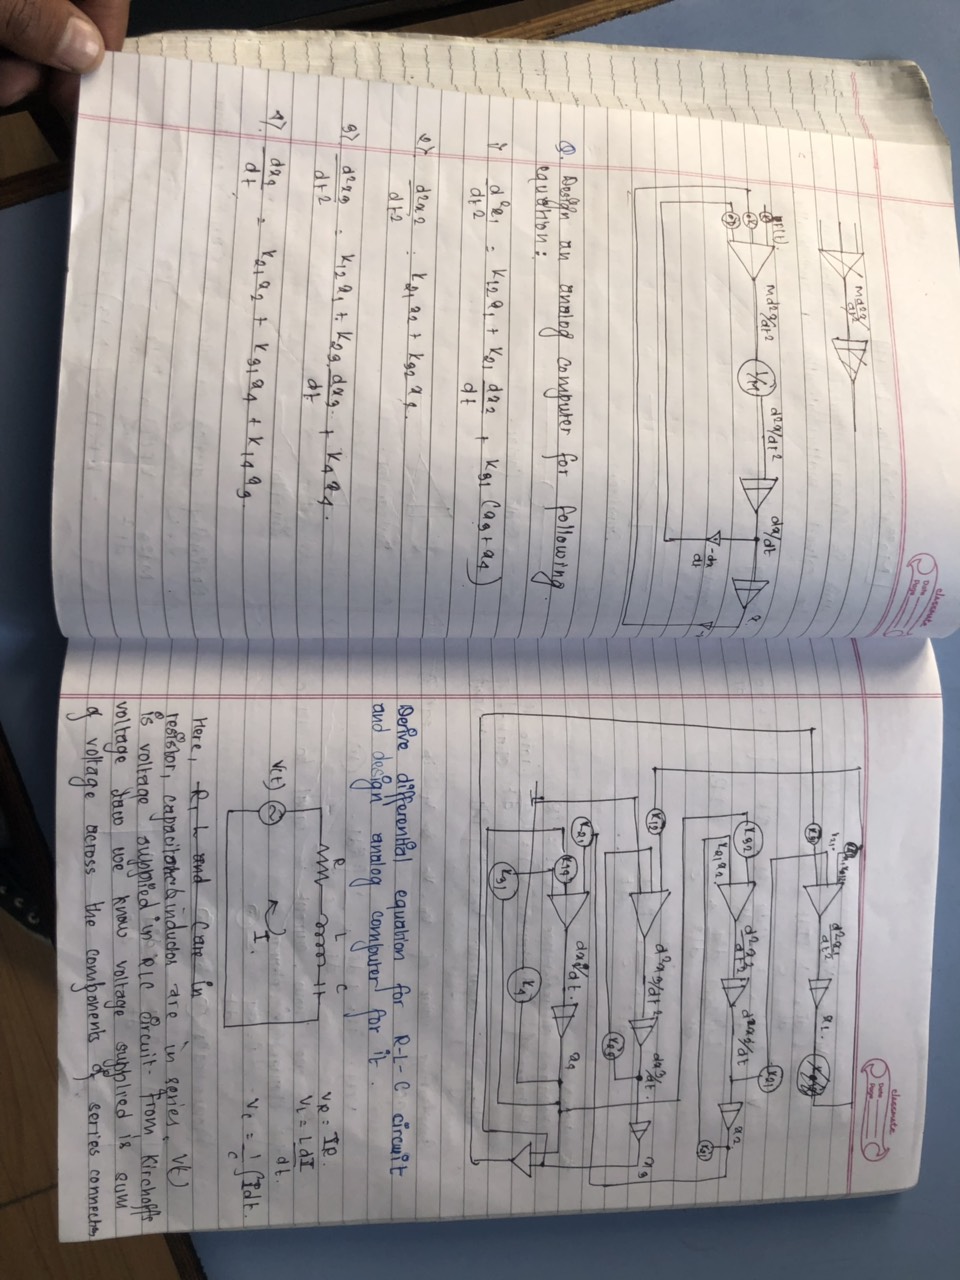 classmate
Date
Page
Md²x/dt²
F(t)
Md²x/dt²
1/M
d²x/dt²
dx/dt
-dx
dt
Q. Design an analog computer for following
equation:
1) d²x₁/dt² = K₁₂x₁ + K₂₁ dx₂/dt + K₃₁(x₃+x₄)
2) d²x₂/dt² = K₂₁x₂ + K₃₂x₄.
3) d²x₃/dt² = K₁₂x₁ + K₂₃ dx₃/dt + K₄x₄.
4) dx₄/dt = K₂₁x₂ + K₃₁x₄ + K₁₄x₃.
classmate
Date
Page
d²x₁/dt²
x₁.
K₂₁
K₃₂
K₂₁x₂
d²x₂/dt²
x₂
K₁₂
d²x₃/dt²
dx₃/dt.
x₃
K₂₁
K₁₄
K₃₁
K₄
x₄
Derive differential equation for R-L-C circuit
and design analog computer for it.
R L C
V(t)
I.
V_R = IR.
V_L = L dI/dt.
V_c = 1/c ∫Idt.
Here, R, L and C are in
resistor, capacitor & inductor are in series, V(t)
is voltage supplied in RLC circuit. from Kirchoffs
voltage law we know voltage supplied is sum
of voltage across the components of series connectn